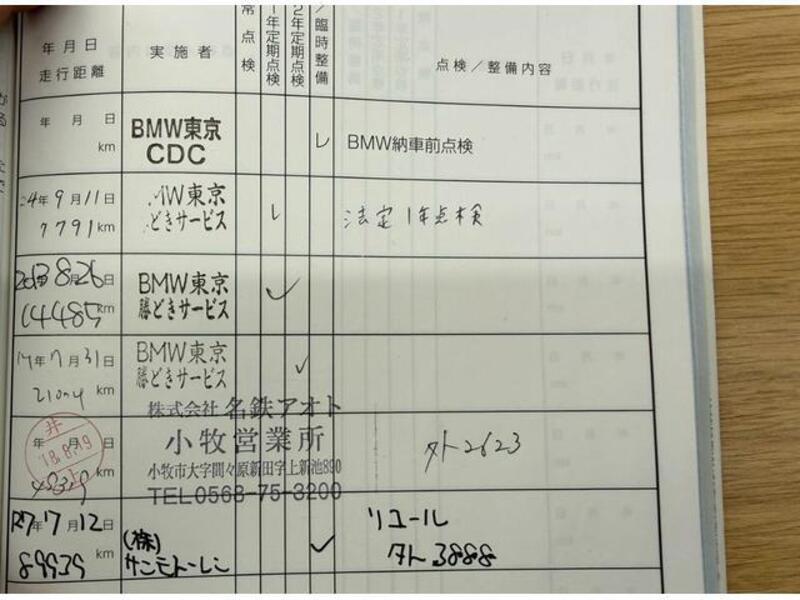 年月日
走行距離
実施者
常点検
1年定期点検
2年定期点検
／臨時整備
点検／整備内容
年 月 日
km
BMW東京
CDC
BMW納車前点検
24年9月11日
7791km
MW東京
どきサービス
法定1年点検
8月26日
14485km
BMW東京
勝どきサービス
年7月31日
km
BMW東京
勝どきサービス
株式会社 名鉄アオト
小牧営業所
小牧市大字間々原新田字上新池890
TEL0568-75-3200
年 月 日
井
18.8.19
km
タト2623
R7年7月12日
89939km
(株)
サンモトーレン
リコール
タト3888